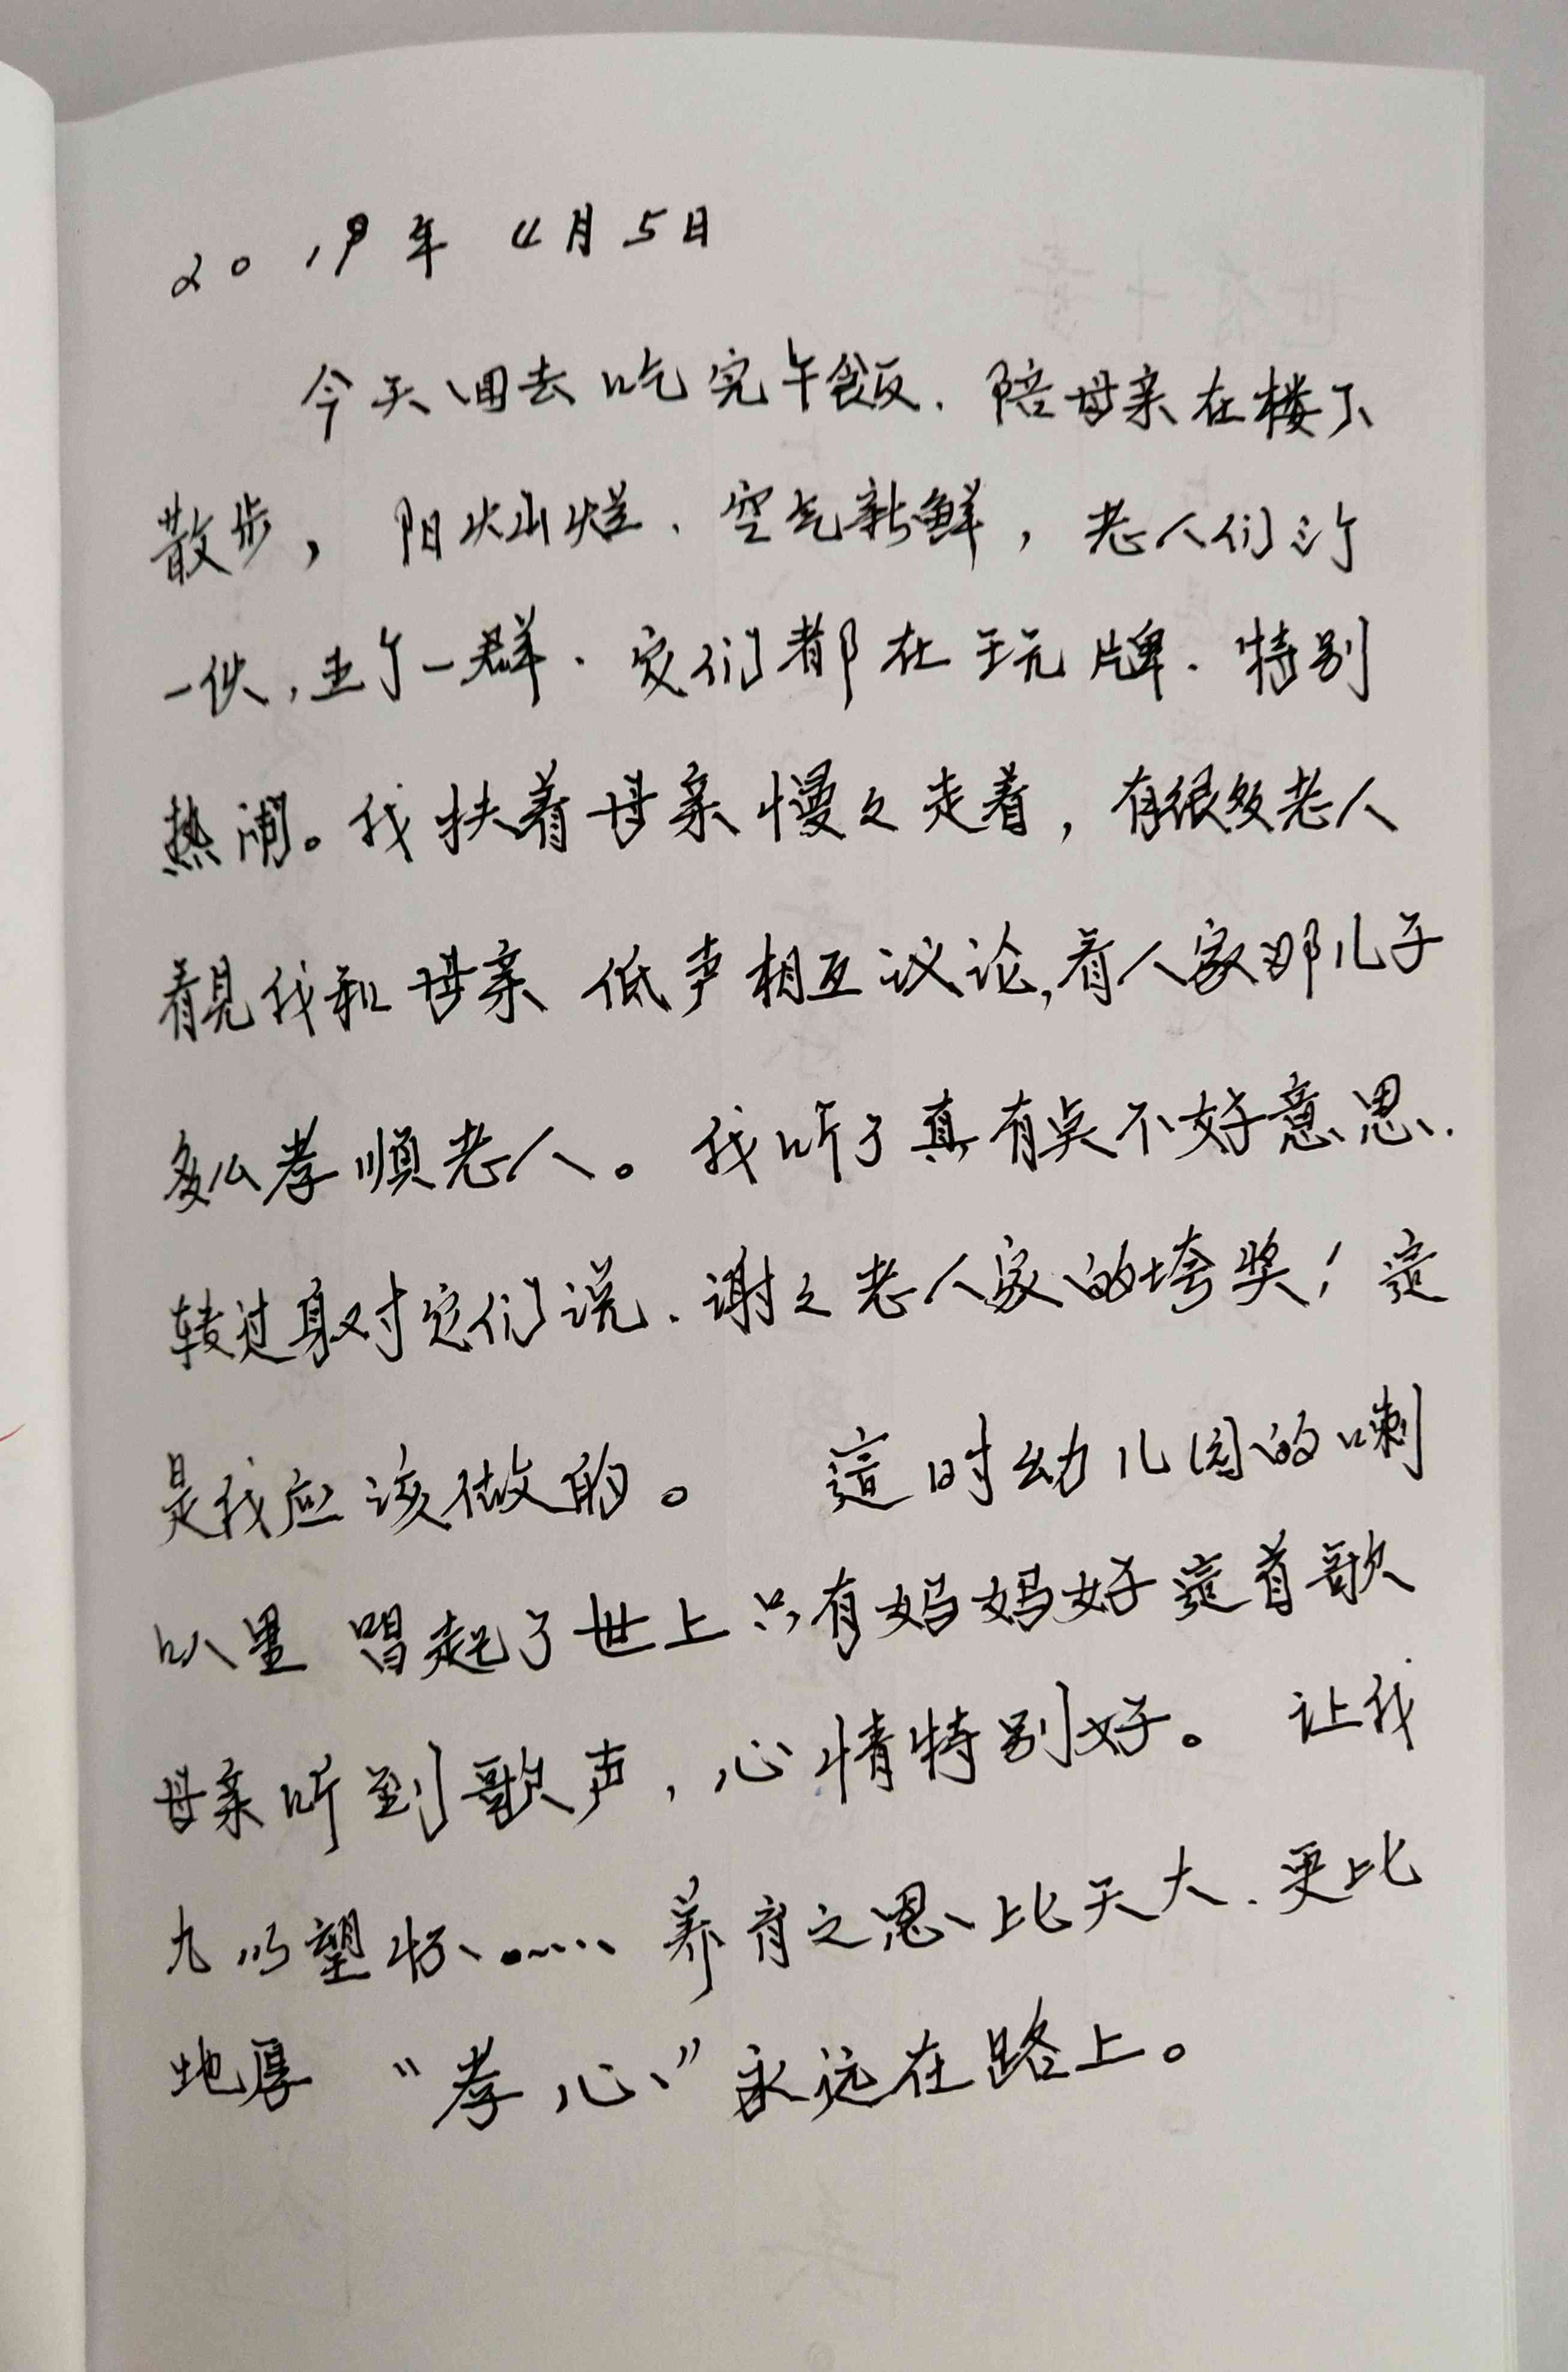 2019年4月5日
今天回去吃完午飯、陪母亲在楼下
散步，阳灿烂、空气新鲜，老人们三个
一伙，五个一群、它们都在玩牌、特别
热闹。我扶着母亲慢々走着，有很多老人
看见我和母亲低声相互议论，看人家那儿子
多么孝顺老人。我听了真有点不好意思、
转过身对它们说、谢々老人家的垮奖！这
是我应该做的。 这时幼儿园的喇
叭里唱起了世上只有妈妈好这首歌
母亲听到歌声，心情特别好。 让我
养育之恩比天大、更比
地厚 “孝心”永远在路上。